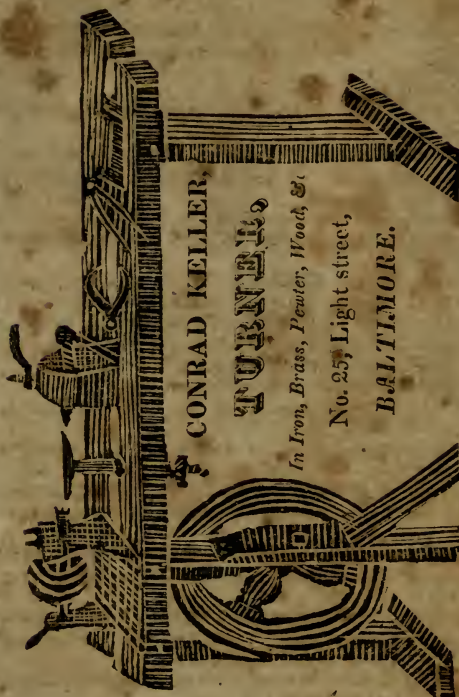 CONRAD KELLER,
TURNER,
In Iron, Brass, Pewter, Wood, &c
No. 25, Light street,
BALTIMORE.